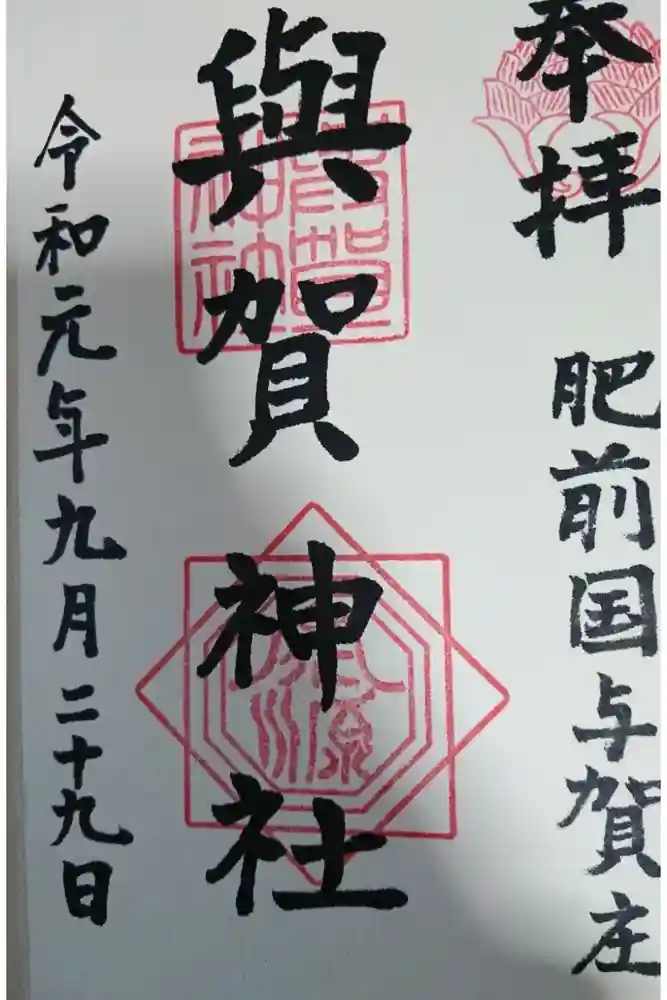 奉拝
肥前国与賀庄
與賀神社
令和元年九月二十九日